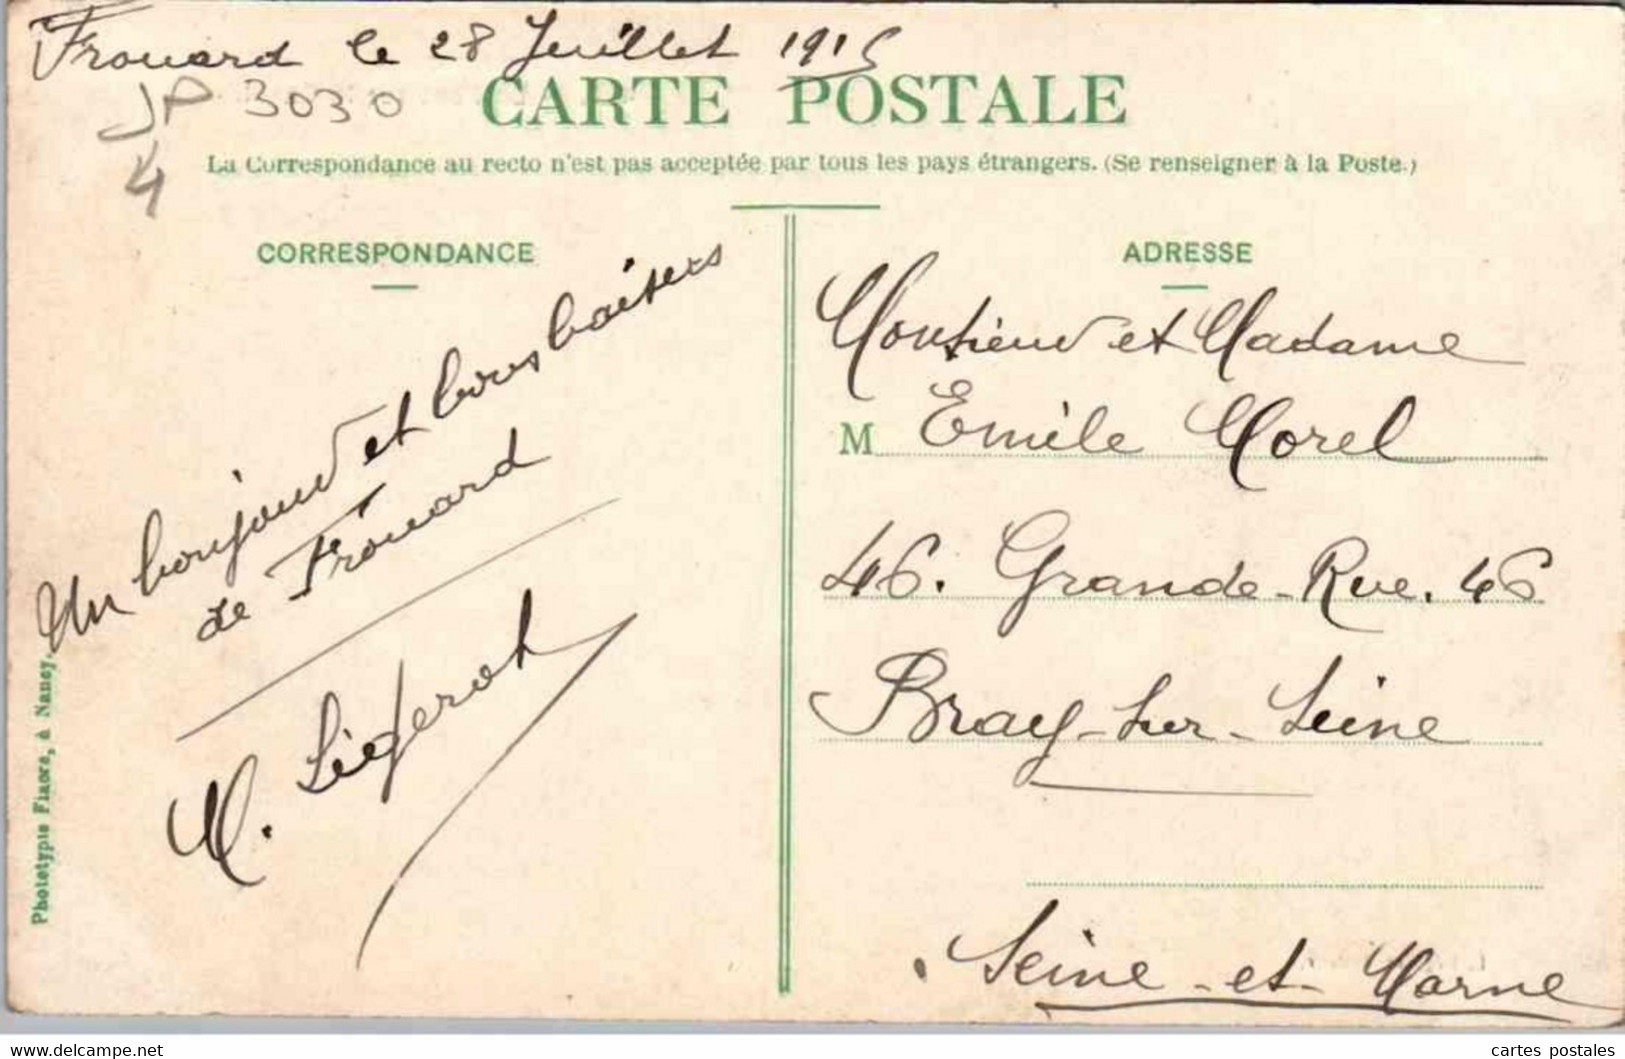 Frouard le 28 Juillet 1915
JP 3030
4
CARTE POSTALE
La Correspondance au recto n'est pas acceptée par tous les pays étrangers. (Se renseigner à la Poste.)
CORRESPONDANCE
Un bonjour et bons baisers
de Frouard
M. Liégerot
Phototypie Fiacre, à Nancy.
ADRESSE
Monsieur et Madame
M Emile Morel
46. Grande-Rue. 46
Bray-sur-Seine
Seine-et-Marne
www.delcampe.net
cartes postales